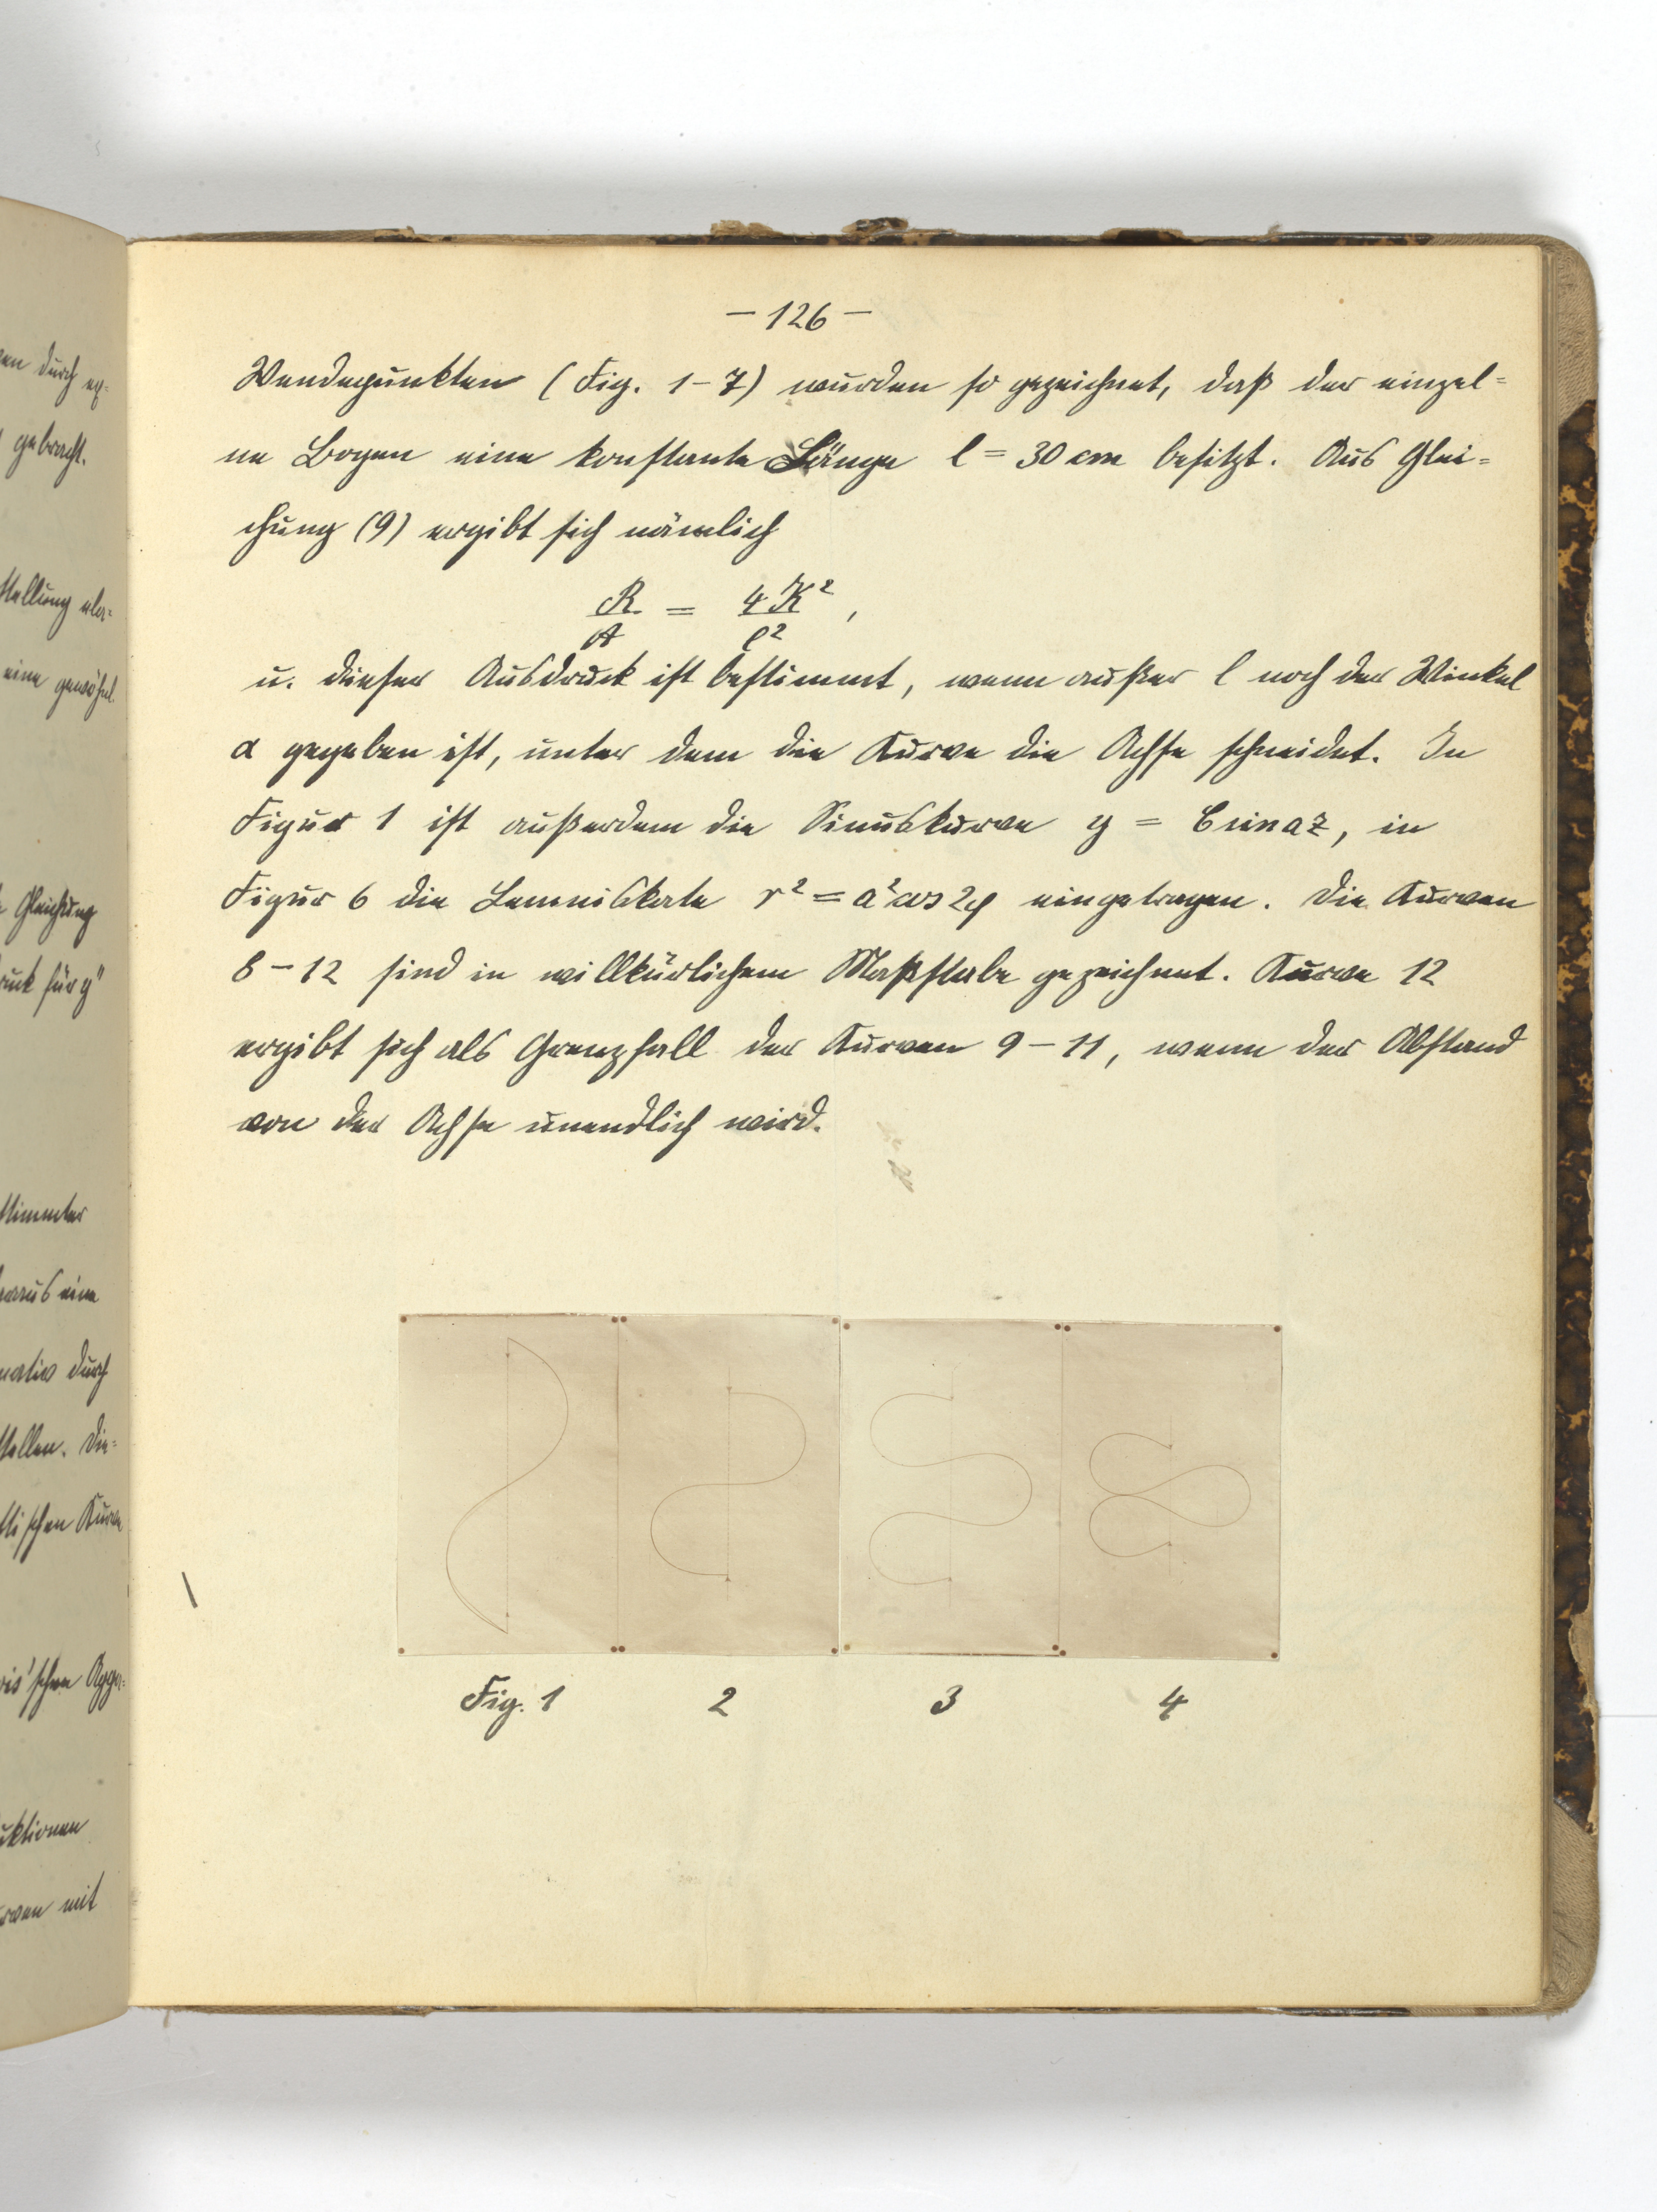 — 126 —
Wendepunkten (Fig. 1–7) wurden so gezeichnet, daß der einzel=
ne Bogen eine konstante Länge l = 30 cm besitzt. Aus Glei=
chung (9) ergibt sich nämlich
R/A = 4K²/l²,
u. dieser Ausdruck ist bestimmt, wenn außer l noch der Winkel
α gegeben ist, unter dem die Kurve die Achse schneidet. In
Figur 1 ist außerdem die Sinuskurve y = C sin az, in
Figur 6 die Lemniskate r² = a² cos 2φ eingetragen. Die Kurven
8–12 sind in willkürlichem Maßstabe gezeichnet. Kurve 12
ergibt sich als Grenzfall der Kurven 9–11, wenn der Abstand
von der Achse unendlich wird.
Fig. 1 2 3 4
durch
gebracht.
stellung
eine
Gleichung
für y"
stimmter
eine
durch
stellen. Die=
schen Kurve
mit